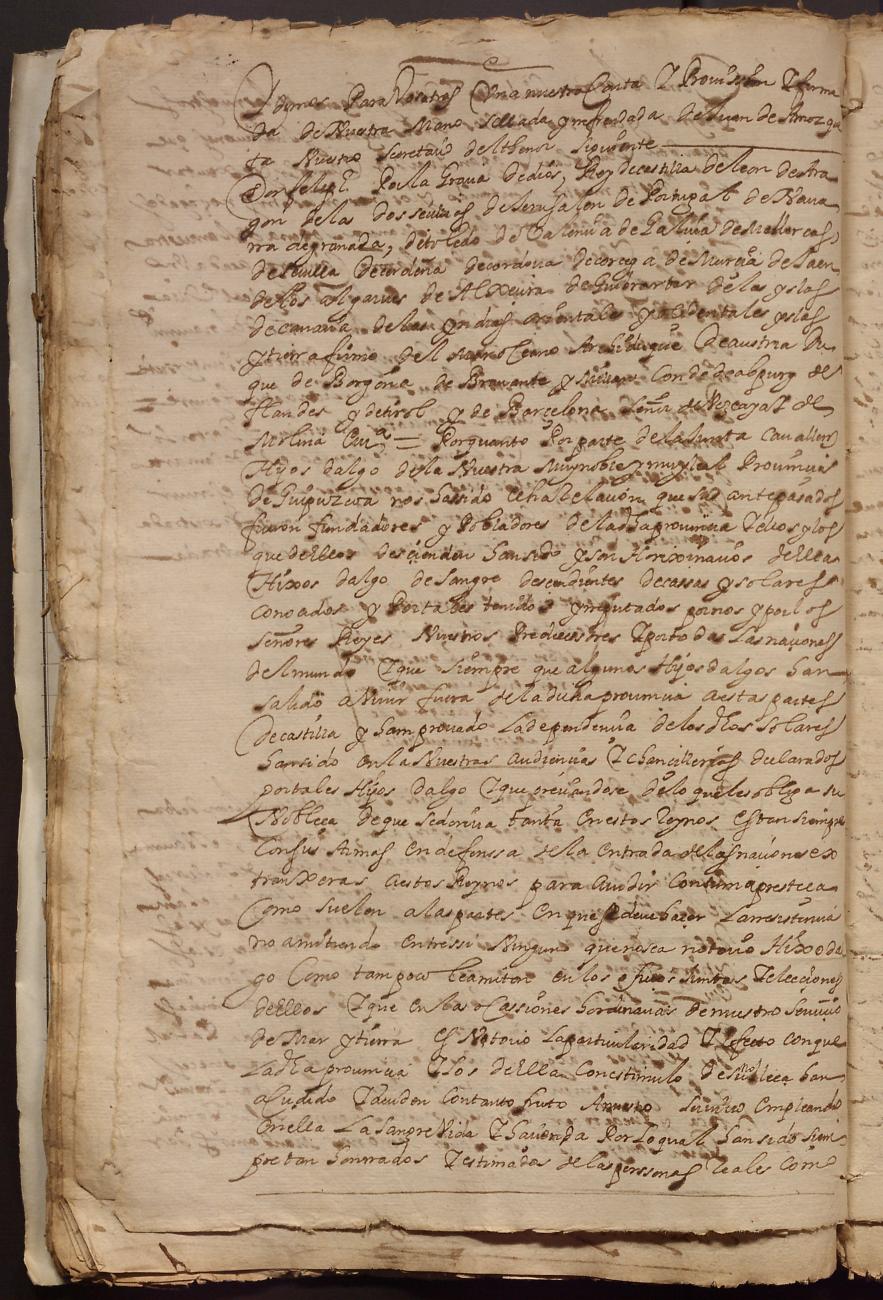 Dimos Para Vosotros Una nuestra Carta E Provission E firma
da de Nuestra Mano Sellada y refrendada de Juan de Amezque
ta Nuestro Secretario del thenor Siguiente
Don felipe Por la Gracia de dios, Rey de castilla de leon de Ara
gon de las dos secilias de Jerusalen de Portugal de Nava
rra de granada, de toledo de Valencia de Galicia de Mallorcas,
de sevilla de cerdeña de cordova de corcega de Murcia de Jaen
de los algarves de Alxecira de Gibrartar de las yslas
de canaria de las yndias orientales y ocidentales yslas
y tierra firme del mar oceano Archiduque De austria Du
que de Borgoña de Bravante y Milan Conde de abspurg de
flandes y de tirol y de Barcelona Señor de Vizcaya E de
Molina &c = Por quanto Por parte de la Junta Cavalleros
Hijos dalgo de la Nuestra Muy noble y muy leal Provincia
de Guipuzcoa nos ha sido echa Relacion que sus antepasados
fueron fundadores y Pobladores de la dha provincia E ellos y los
que de Ellos descienden han sido y son Horixinarios de Ella
Hixos dalgo de Sangre descendientes de cassas y solares
Conocidos y Por tales tenidos y reputados por nos y por los
Señores Reyes Nuestros Predecesores E por todas las naciones
del mundo E que siempre que algunos Hijos dalgos han
salido a Vivir fuera de la dicha provincia a estas partes
De castilla y han provado La dependencia de los dhos solares
han sido en las Nuestras audiencias E chancillerias declarados
por tales Hijos dalgo E que preciandose de lo que les obliga su
Nobleca de que se deriva tanta en estos Reynos Estan siempre
Con sus Armas en defenssa de la entrada de las naciones ex
tranxeras a estos Reynos para acudir Con tima presteca
Como suelen a las partes en que se deve hacer La resistencia
no amitiendo entre ssi Ningun que no sea notorio Hixo dal
go Como tampoco le amiten en los oficios Juntas E elecciones
de Ellos E que en las ocassiones hordinarias de nuestro servicio
de Mar y tierra Es Notorio La particularidad E efecto con que
La dha provincia E los de Ella Con estimulo de su nobleca han
acudido E acuden Con tanto fruto A nuestro servicio empleando
en ella La sangre Vida E hacienda Por lo qual han sido siem
pre tan honrrados E estimados de las perssonas reales como